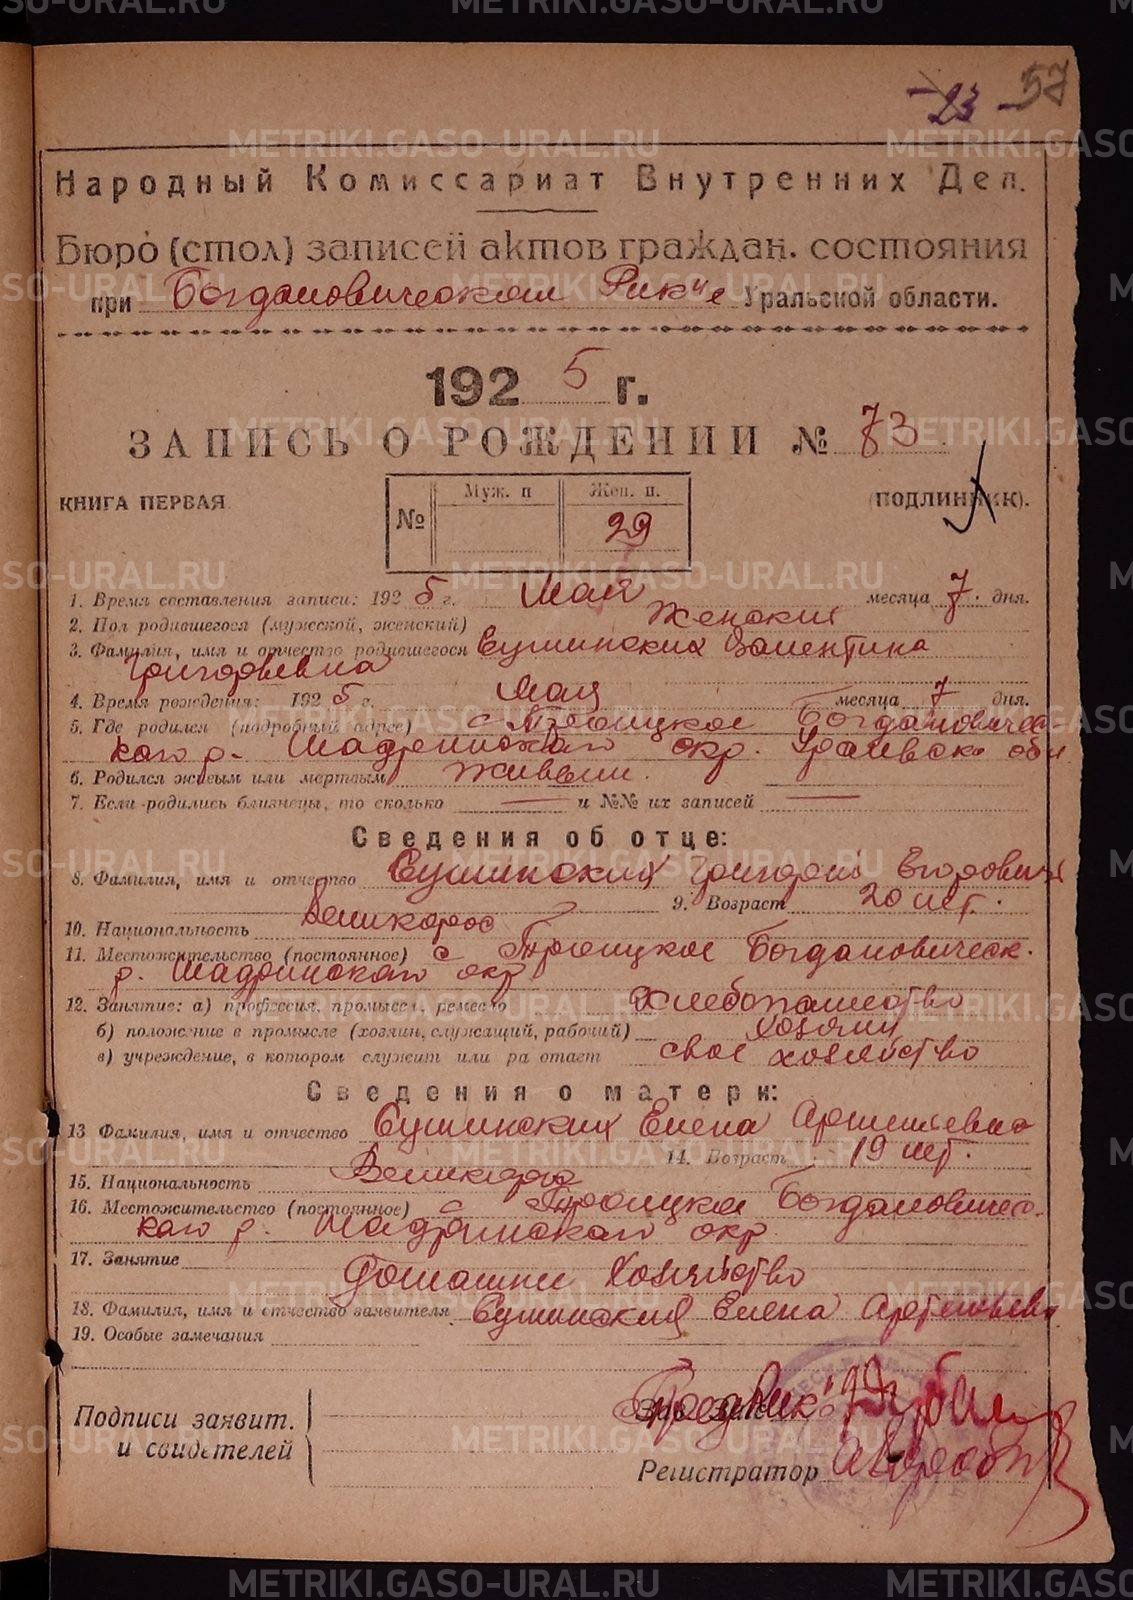 23 57
Народный Комиссариат Внутренних Дел.
Бюро (стол) записей актов граждан. состояния
при Богдановическом Рик'е Уральской области.
1925 г.
ЗАПИСЬ О РОЖДЕНИИ № 73
КНИГА ПЕРВАЯ (ПОДЛИННИК).
№ Муж. п Жен. п.
29
1. Время составления записи: 1925 г. Мая месяца 7 дня.
2. Пол родившегося (мужской, женский) Женский
3. Фамилия, имя и отчество родившегося Сушинских Валентина
Григорьевна
4. Время рождения: 1925 г. Мая месяца 7 дня.
5. Где родился (подробный адрес) с Троицкое Богдановичес-
кого р. Шадринского окр. Уральско обл
6. Родился живым или мертвым живым.
7. Если родились близнецы, то сколько — и №№ их записей —
Сведения об отце:
8. Фамилия, имя и отчество Сушинских Григорий Егорович
9. Возраст 20 лет.
10. Национальность Великорос
11. Местожительство (постоянное) с Троицкое Богдановическ.
р. Шадринского окр
12. Занятие: а) профессия, промысел, ремесло Хлебопашество
б) положение в промысле (хозяин, служащий, рабочий) Хозяин
в) учреждение, в котором служит или ра отает свое хозяйство
Сведения о матери:
13 Фамилия, имя и отчество Сушинских Елена Артемьевна
14. Возраст 19 лет.
15. Национальность Великорос
16. Местожительство (постоянное) с Троицкое Богдановичес-
кого р. Шадринского окр
17. Занятие Домашне Хозяйство
18. Фамилия, имя и отчество заявителя Сушинских Елена Артемьевн
19. Особые замечания
Подписи заявит.
и свидетелей
Пред Рик'а
Регистратор
METRIKI.GASO-URAL.RU